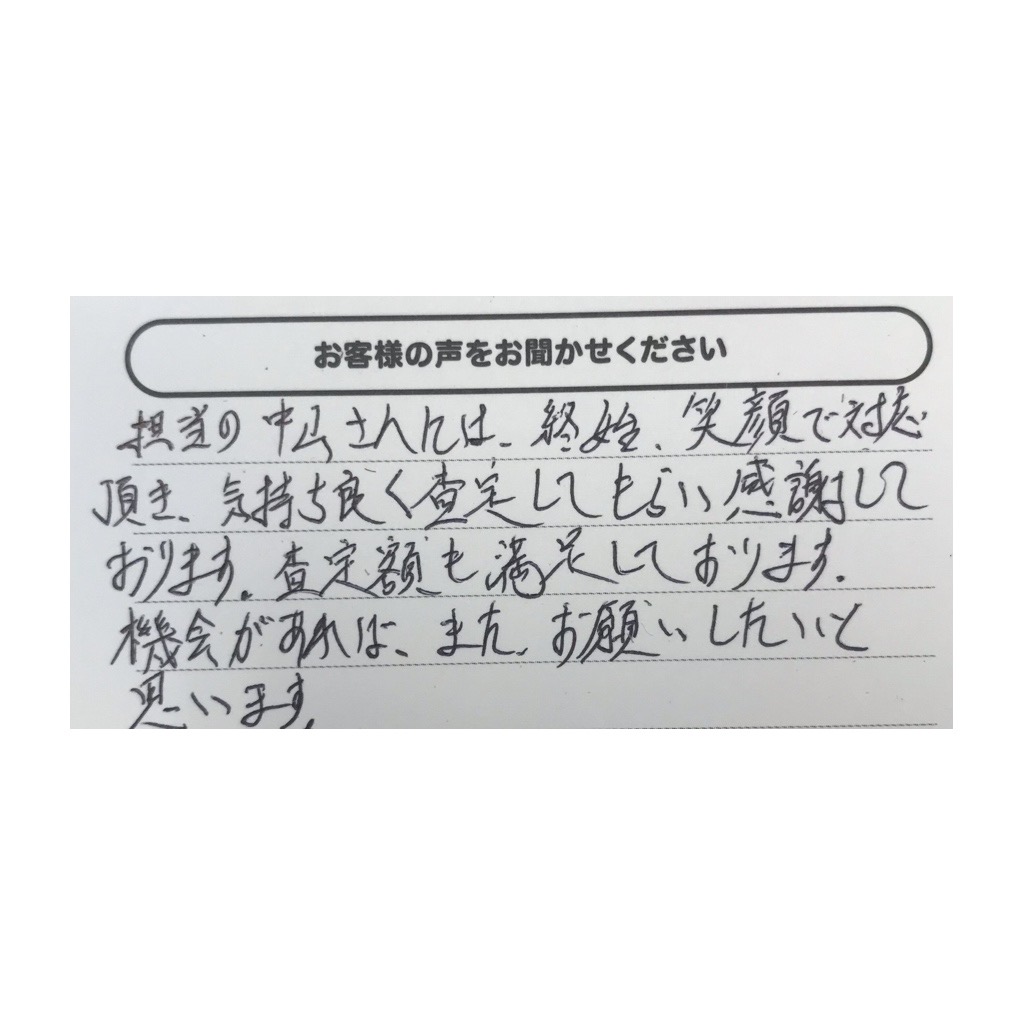 お客様の声をお聞かせください
担当の中山さんには、終始、笑顔で対応
頂き、気持ち良く査定してもらい感謝して
おります。査定額も満足しております。
機会があれば、また、お願いしたいと
思います。